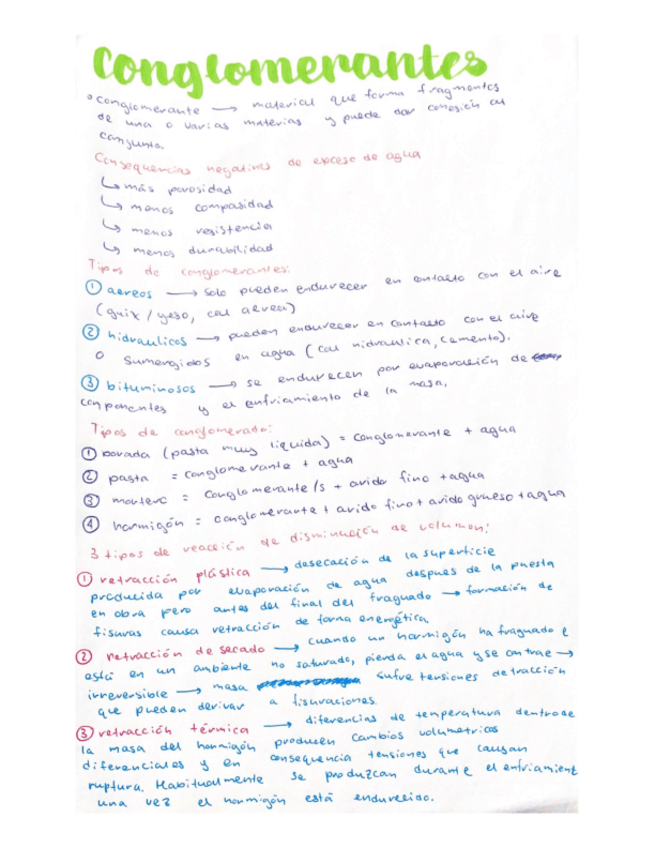 Conglomerantes
° conglomerante → material que forma fragmentos
de una o varias materias y puede dar cohesión al
conjunto.
Consequencias negativas de exceso de agua
↳ más porosidad
↳ menos compasidad
↳ menos resistencia
↳ menos durabilidad
Tipos de conglomerantes:
① aereos → solo pueden endurecer en contacto con el aire
(guix / yeso, cal aerea)
② hidraulicos → pueden endurecer en contacto con el aire
o sumergidos en agua (cal hidraulica, cemento).
③ bituminosos → se endurecen por evaporación de
componentes y el enfriamiento de la masa.
Tipos de conglomerado:
① (pasta muy liquida) = conglomerante + agua
② pasta = conglomerante + agua
③ mortero = conglomerante/s + arido fino + agua
④ hormigón = conglomerante + arido fino + arido grueso + agua
3 tipos de reacción de disminución de volumen:
① retracción plástica → desecación de la superficie
producida por evaporación de agua despues de la puesta
en obra pero antes del final del fraguado → formación de
fisuras causa retracción de forma energética.
② retracción de secado → cuando un hormigón ha fraguado e
está en un ambiente no saturado, pierda el agua y se contrae →
irreversible → masa sufre tensiones de tracción
que pueden derivar a fisuraciones.
③ retracción térmica → diferencias de temperatura dentro de
la masa del hormigón producen cambios volumetricos
diferenciales y en consequencia tensiones que causan
ruptura. Habitualmente se produzcan durante el enfriamient
una vez el hormigón está endurecido.